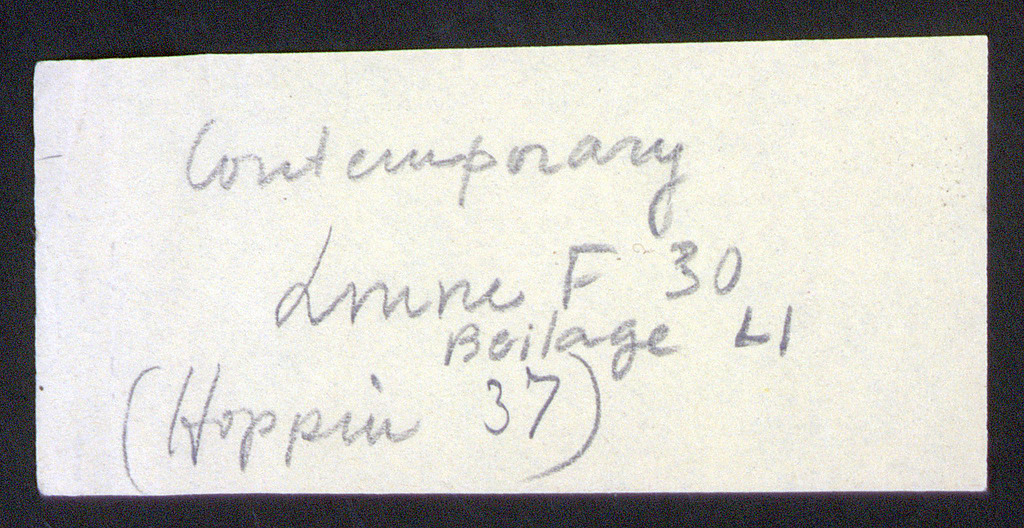 Contemporary
Louvre F 30
Beilage L1
(Hoppin 37)